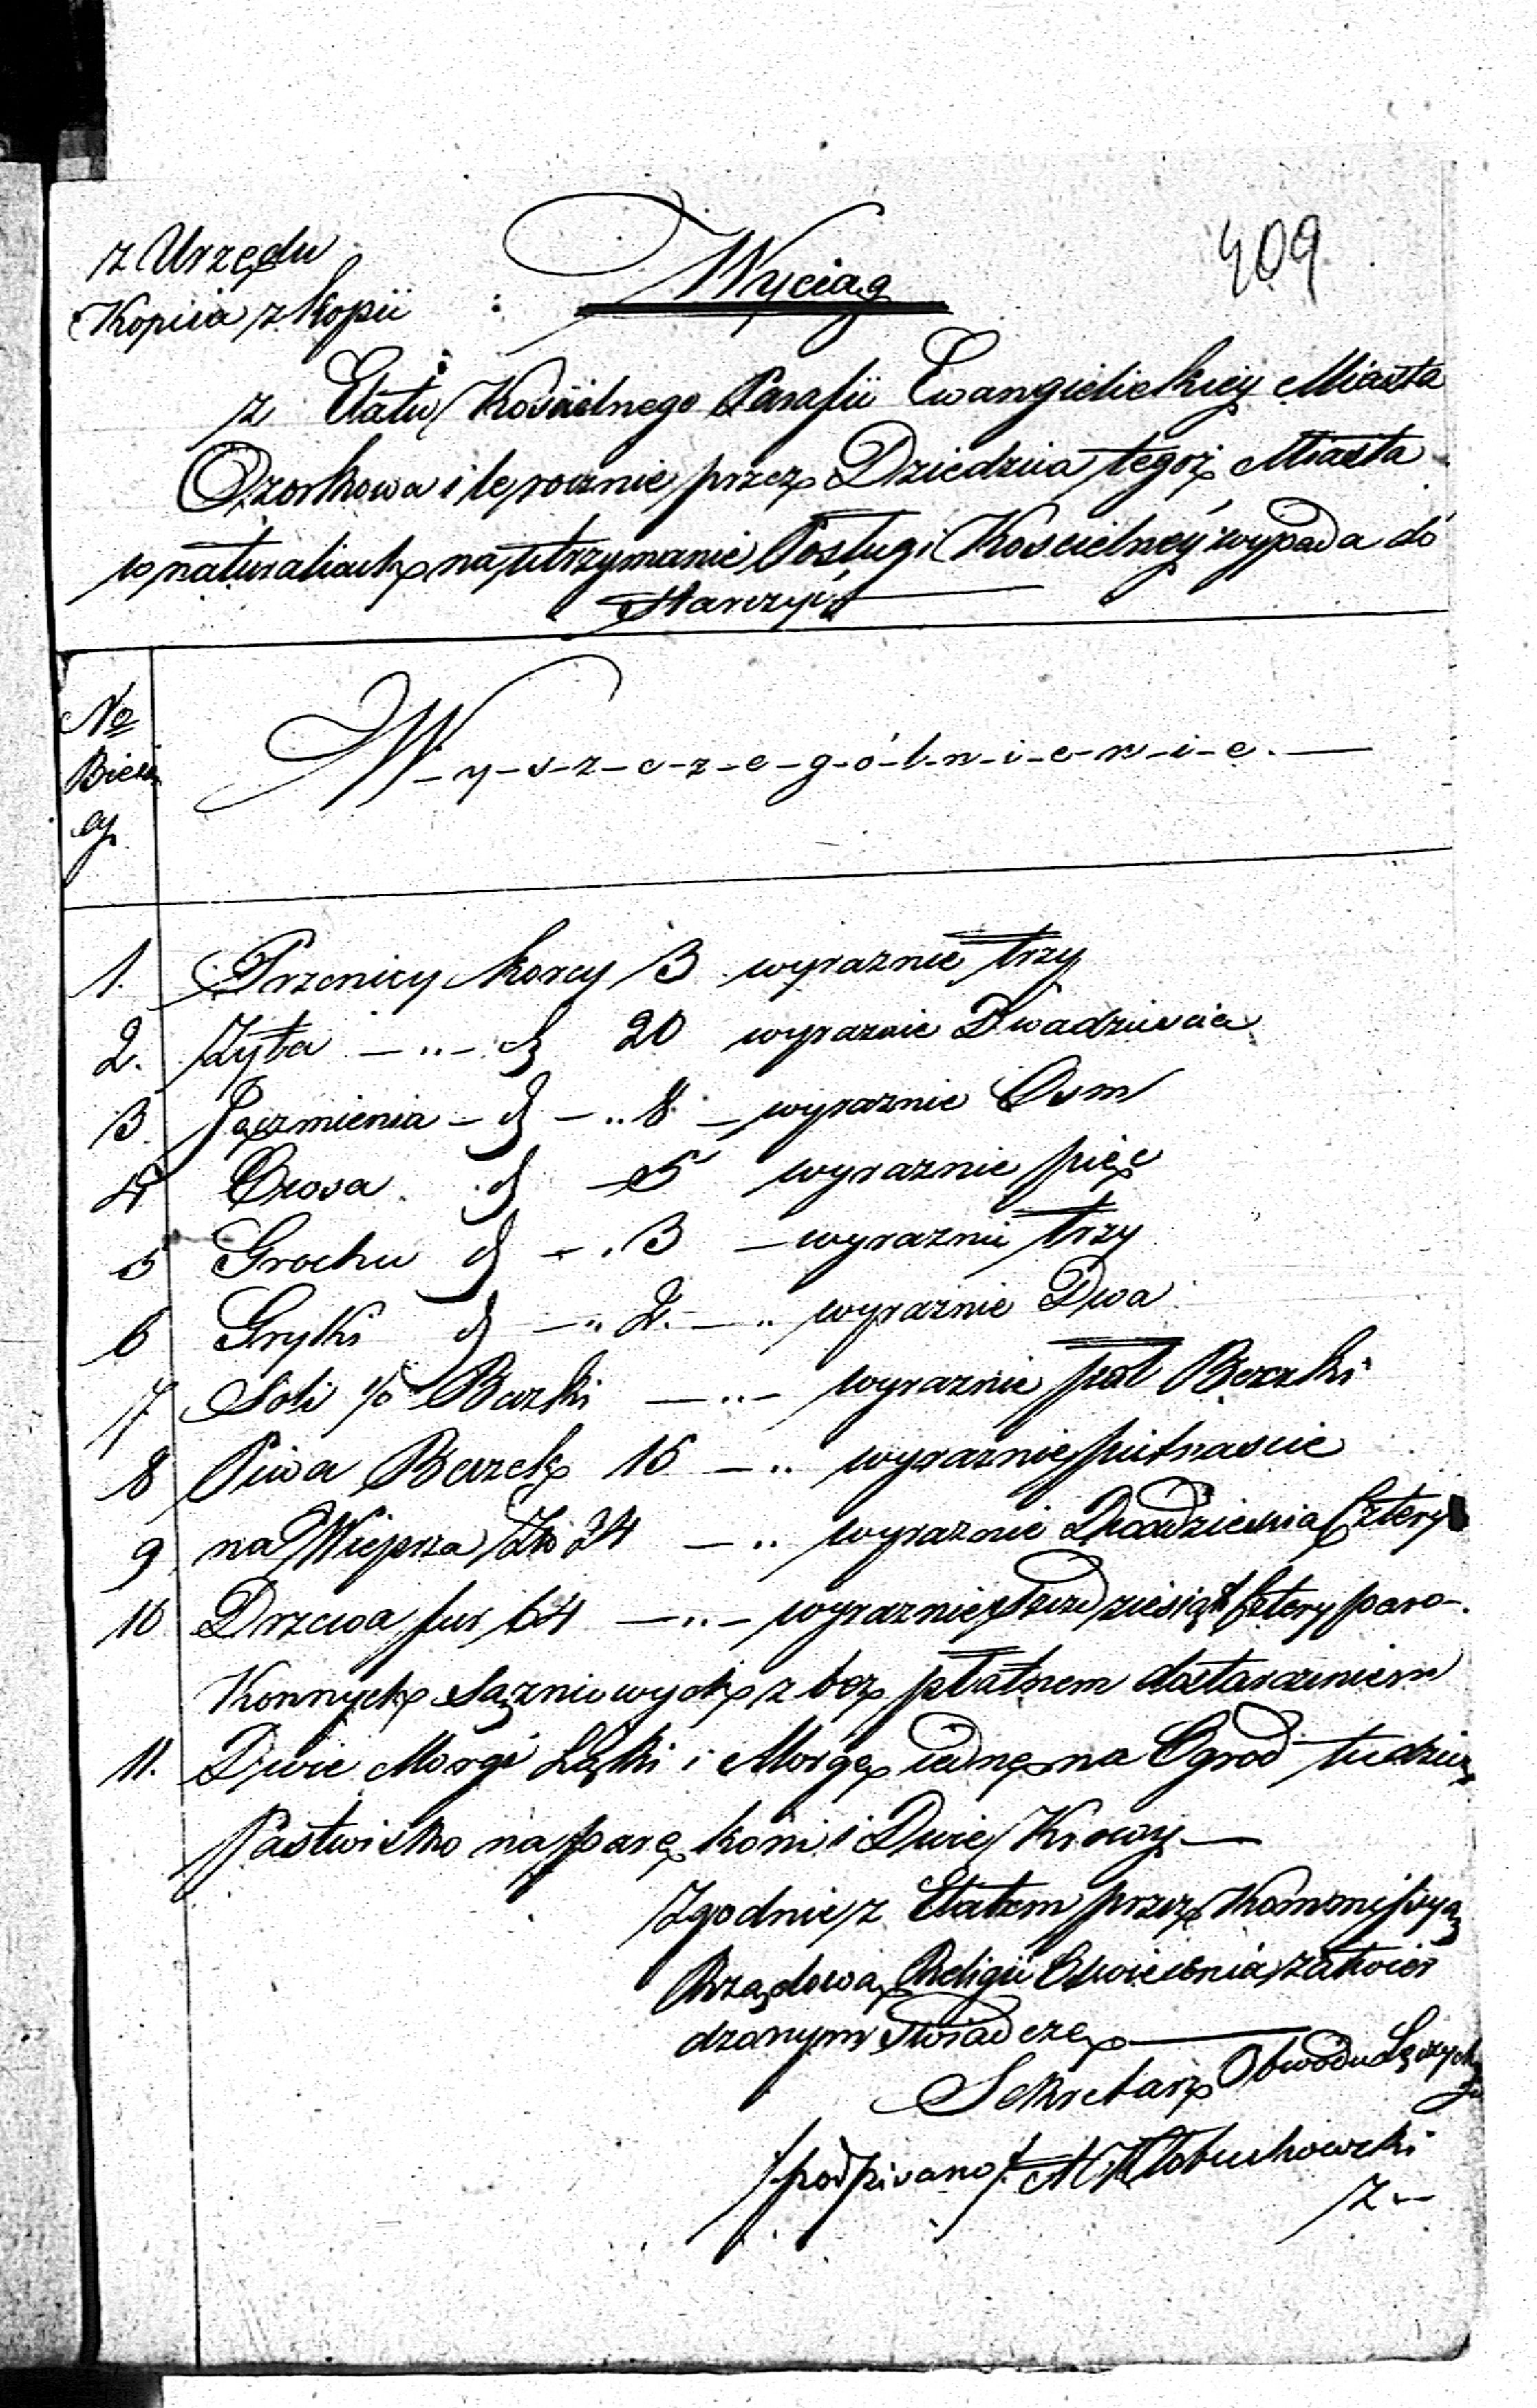 z Urzędu
Kopiia z kopii : Wyciąg 409
z Etatu Kościelnego Parafii Ewangielickiey Miasta
Ozorkowa ile rocznie przez Dziedzica tegoż Miasta
w naturaliach na utrzymanie Posługi Kościelney wypada do
starczyć
No
Bieżą
cy
W-y-s-z-c-z-e-g-ó-l-n-i-e-n-i-e.
1. Przenicy korcy 3 wyraznie trzy
2. Żyta — „ — d 20 wyraznie Dwadziescia
3. Jęczmienia — d — „ 8 — wyraznie Osm
4 Owsa d — 5 wyraznie pięć
5 Grochu d — „ 3 — wyraznie trzy
6 Gryki d — „ 2. — „ wyraznie Dwa
7 Soli ½ Beczki — „ — wyraznie poł Beczki
8 Piwa Beczek 15 — „ wyraznie pietnascie
9 na Wieprza Zło 24 — „ wyraznie Dwadziescia Cztery
10 Drzewa fur 64 — „ — wyraznie Szesdziesiąt Cztery paro-
Konnych Sązniowych z bez płatnem dostarczeniem
11. Dwie Morgi Łąki i Morgę iednę na Ogrod tudzież
Pastwisko na parę koni i Dwie Krowy —
Zgodnie z Etatem przez Kommissyą
Rządową Religii Oswiecenia zatwier
dzonym Swiadczę —
Sekretarz Obwodu Łęczyck
go
/podpisano/ Kłobuchowski